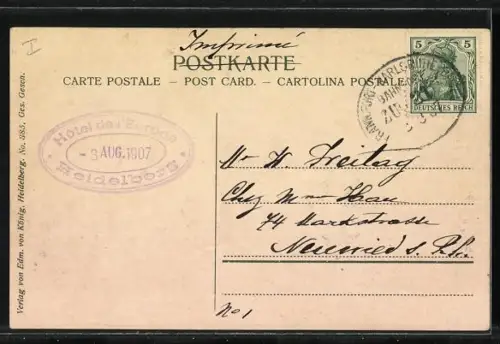 I
Imprimé
POSTKARTE
CARTE POSTALE – POST CARD. – CARTOLINA POSTALE
5 5
DEUTSCHES REICH
FRANKFURT KARLSRUHE
BAHNPOST
ZUG
Hôtel de l'Europe
- 3 AUG. 1907
Heidelberg
Mr W. Freitag
Chez Mr Hau
74 Marktstrasse
Neuwied s. Rh.
No 1
Verlag von Edm. von König, Heidelberg. No. 385. Ges. Gesch.